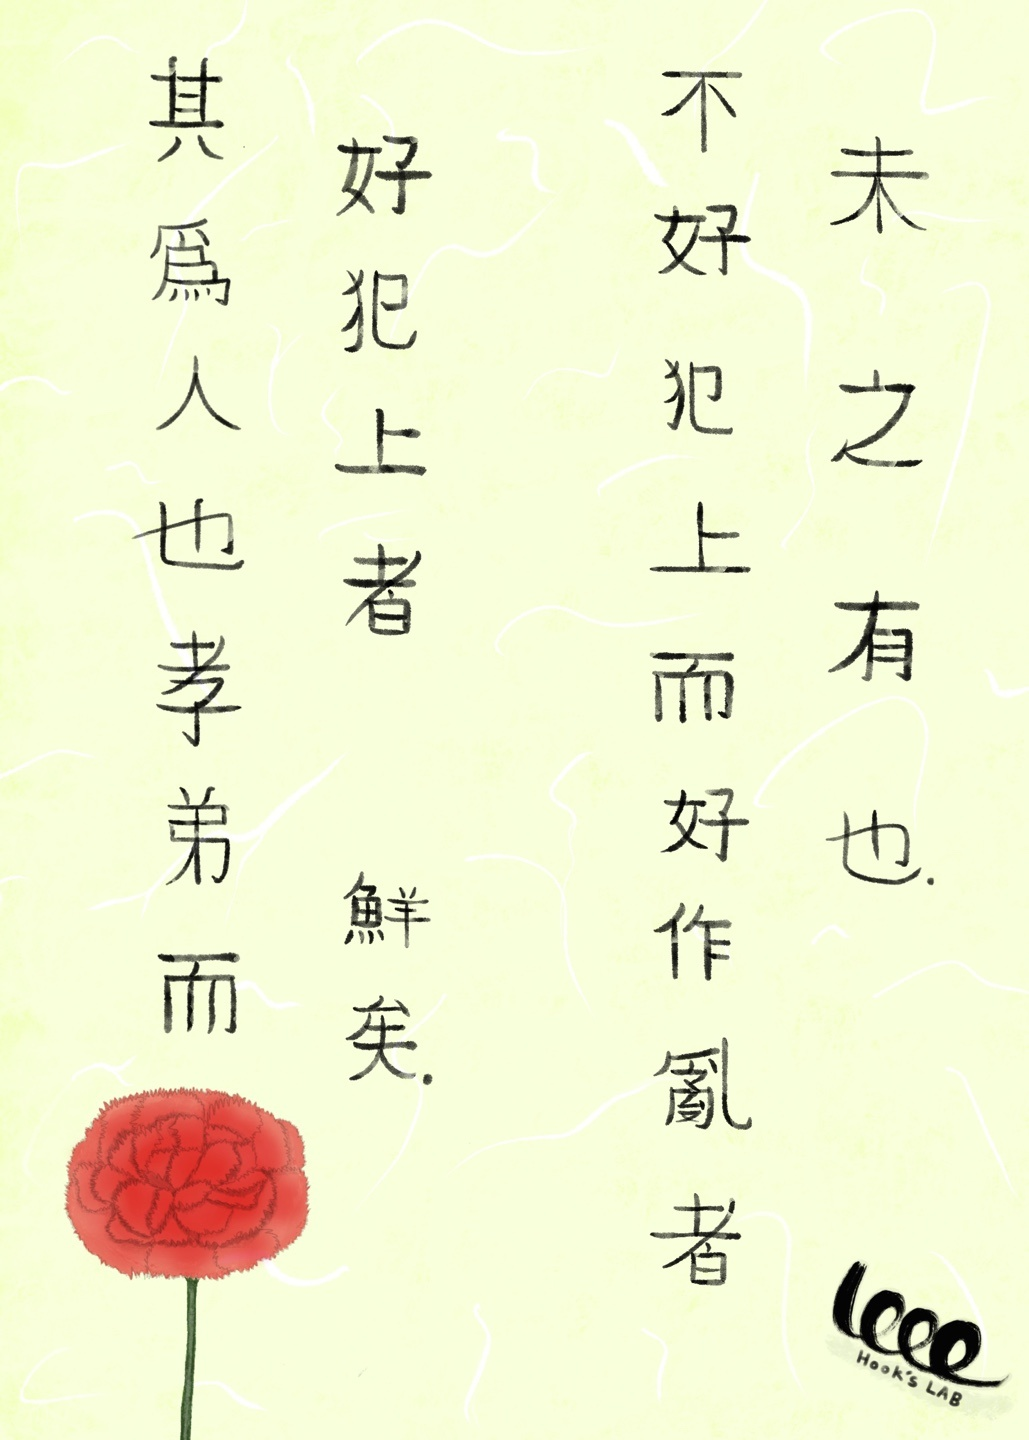 其爲人也孝弟而
好犯上者 鮮矣.
不好犯上而好作亂者
未之有也.
Hook's LAB